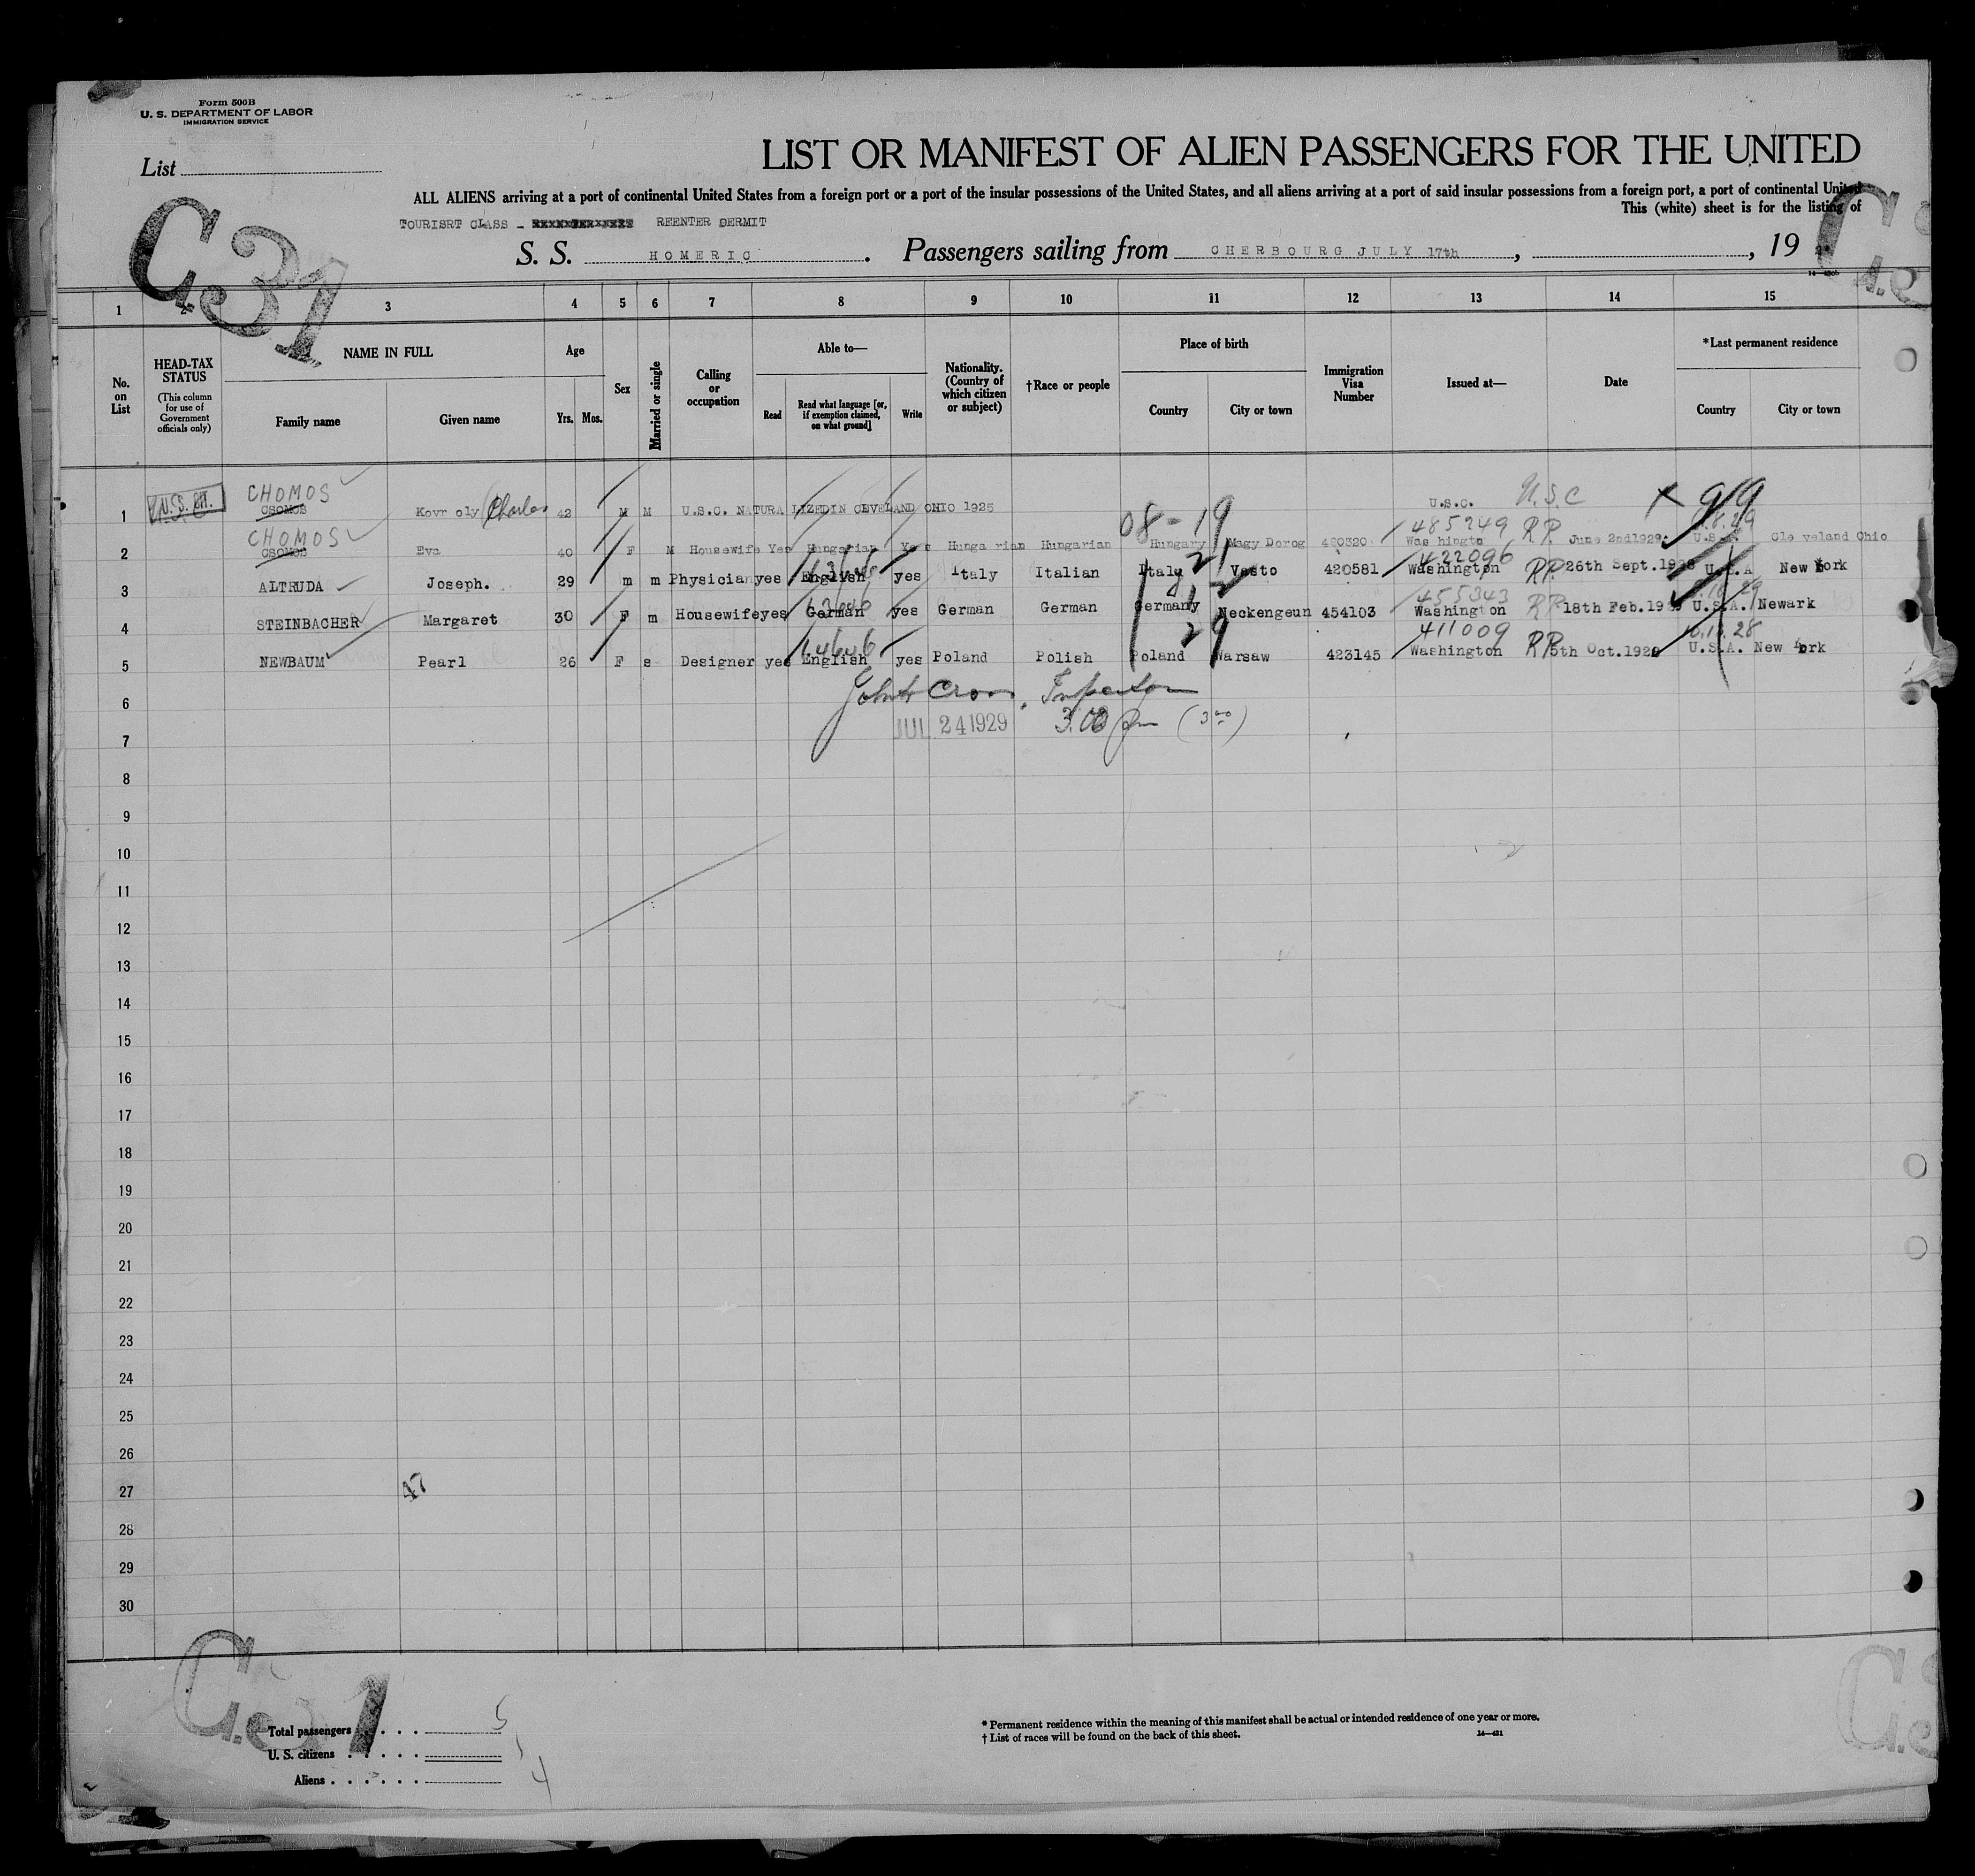 Form 500B
U. S. DEPARTMENT OF LABOR
IMMIGRATION SERVICE
List
LIST OR MANIFEST OF ALIEN PASSENGERS FOR THE UNITED
ALL ALIENS arriving at a port of continental United States from a foreign port or a port of the insular possessions of the United States, and all aliens arriving at a port of said insular possessions from a foreign port, a port of continental United
This (white) sheet is for the listing of
TOURISRT CLASS - REENTER PERMIT
S. S. HOMERIC . Passengers sailing from CHERBOURG JULY 17th , , 19
C.31
1 2 3 4 5 6 7 8 9 10 11 12 13 14 15
No. on List
HEAD-TAX STATUS (This column for use of Government officials only)
NAME IN FULL
Family name Given name
Age
Yrs. Mos.
Sex
Married or single
Calling or occupation
Able to—
Read Read what language [or, if exemption claimed, on what ground] Write
Nationality. (Country of which citizen or subject)
†Race or people
Place of birth
Country City or town
Immigration Visa Number
Issued at—
Date
*Last permanent residence
Country City or town
CHOMOS U.S.C
1 U.S. CIT. CSOMOS Kovr oly (Charles 42 M M U.S.C. NATURA LIZEDIN CLEVELAND OHIO 1925 U.S.C. X 9/9
CHOMOS 08-19 485249 RP
2 CSOMOS Eva 40 F M Housewife Yes Hungarian Yes Hunga rian Hungarian Hungary Nagy Dorog 480320 Was hingto June 2nd1929. U.S.A Cle veland Ohio
422096
3 ALTRUDA Joseph. 29 m m Physician yes English yes Italy Italian Italy Vasto 420581 Washington RP 26th Sept.1928 U.S.A New York
455343
4 STEINBACHER Margaret 30 F m Housewife yes German yes German German Germany Neckengeun 454103 Washington RP 18th Feb.19 U.S.A. Newark
411009 10.10.28
5 NEWBAUM Pearl 26 F s Designer yes English yes Poland Polish Poland Warsaw 423145 Washington RP 5th Oct.1928 U.S.A. New York
6 Inspector
7 JUL 24 1929 3.00 pm (3 00)
8
9
10
11
12
13
14
15
16
17
18
19
20
21
22
23
24
25
26
27 47
28
29
30
C.31
Total passengers . . . . 5
U. S. citizens . . . . . . 1
Aliens . . . . . . 4
* Permanent residence within the meaning of this manifest shall be actual or intended residence of one year or more.
† List of races will be found on the back of this sheet.
14—421